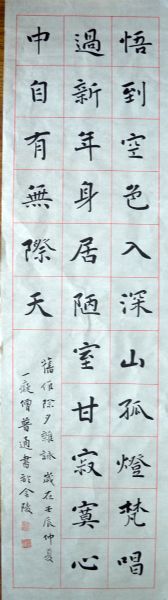 悟到空色入深山孤燈梵唱
過新年身居陋室甘寂寞心
中自有無際天
舊作除夕雜詠歲在壬辰仲夏
一癡僧普通書於金陵